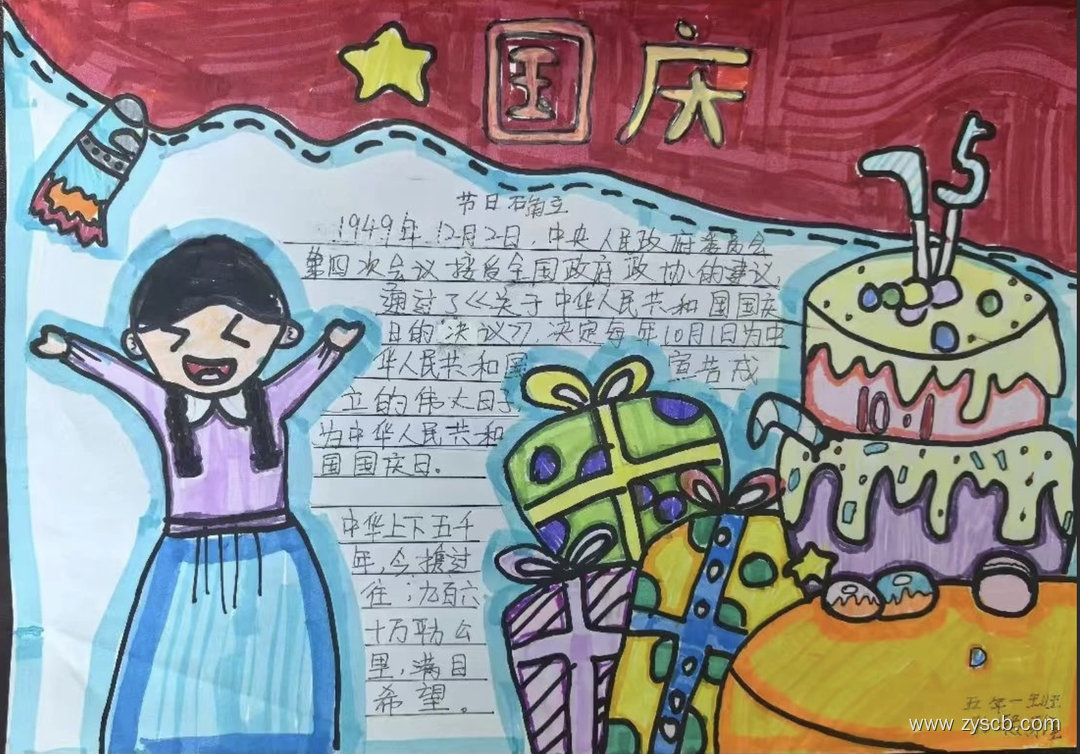 国庆
75
节日确立
1949年12月2日,中央人民政府委员会
第四次会议接受全国政府政协的建议,
通过了《关于中华人民共和国国庆
日的决议》决定每年10月1日为中
华人民共和国 宣告成
立的伟大日子
为中华人民共和
国国庆日。
10.1
中华上下五千
年,今携过
往;九百六
十万平方公
里,满目
希望。
五年一班
www.zyscb.com